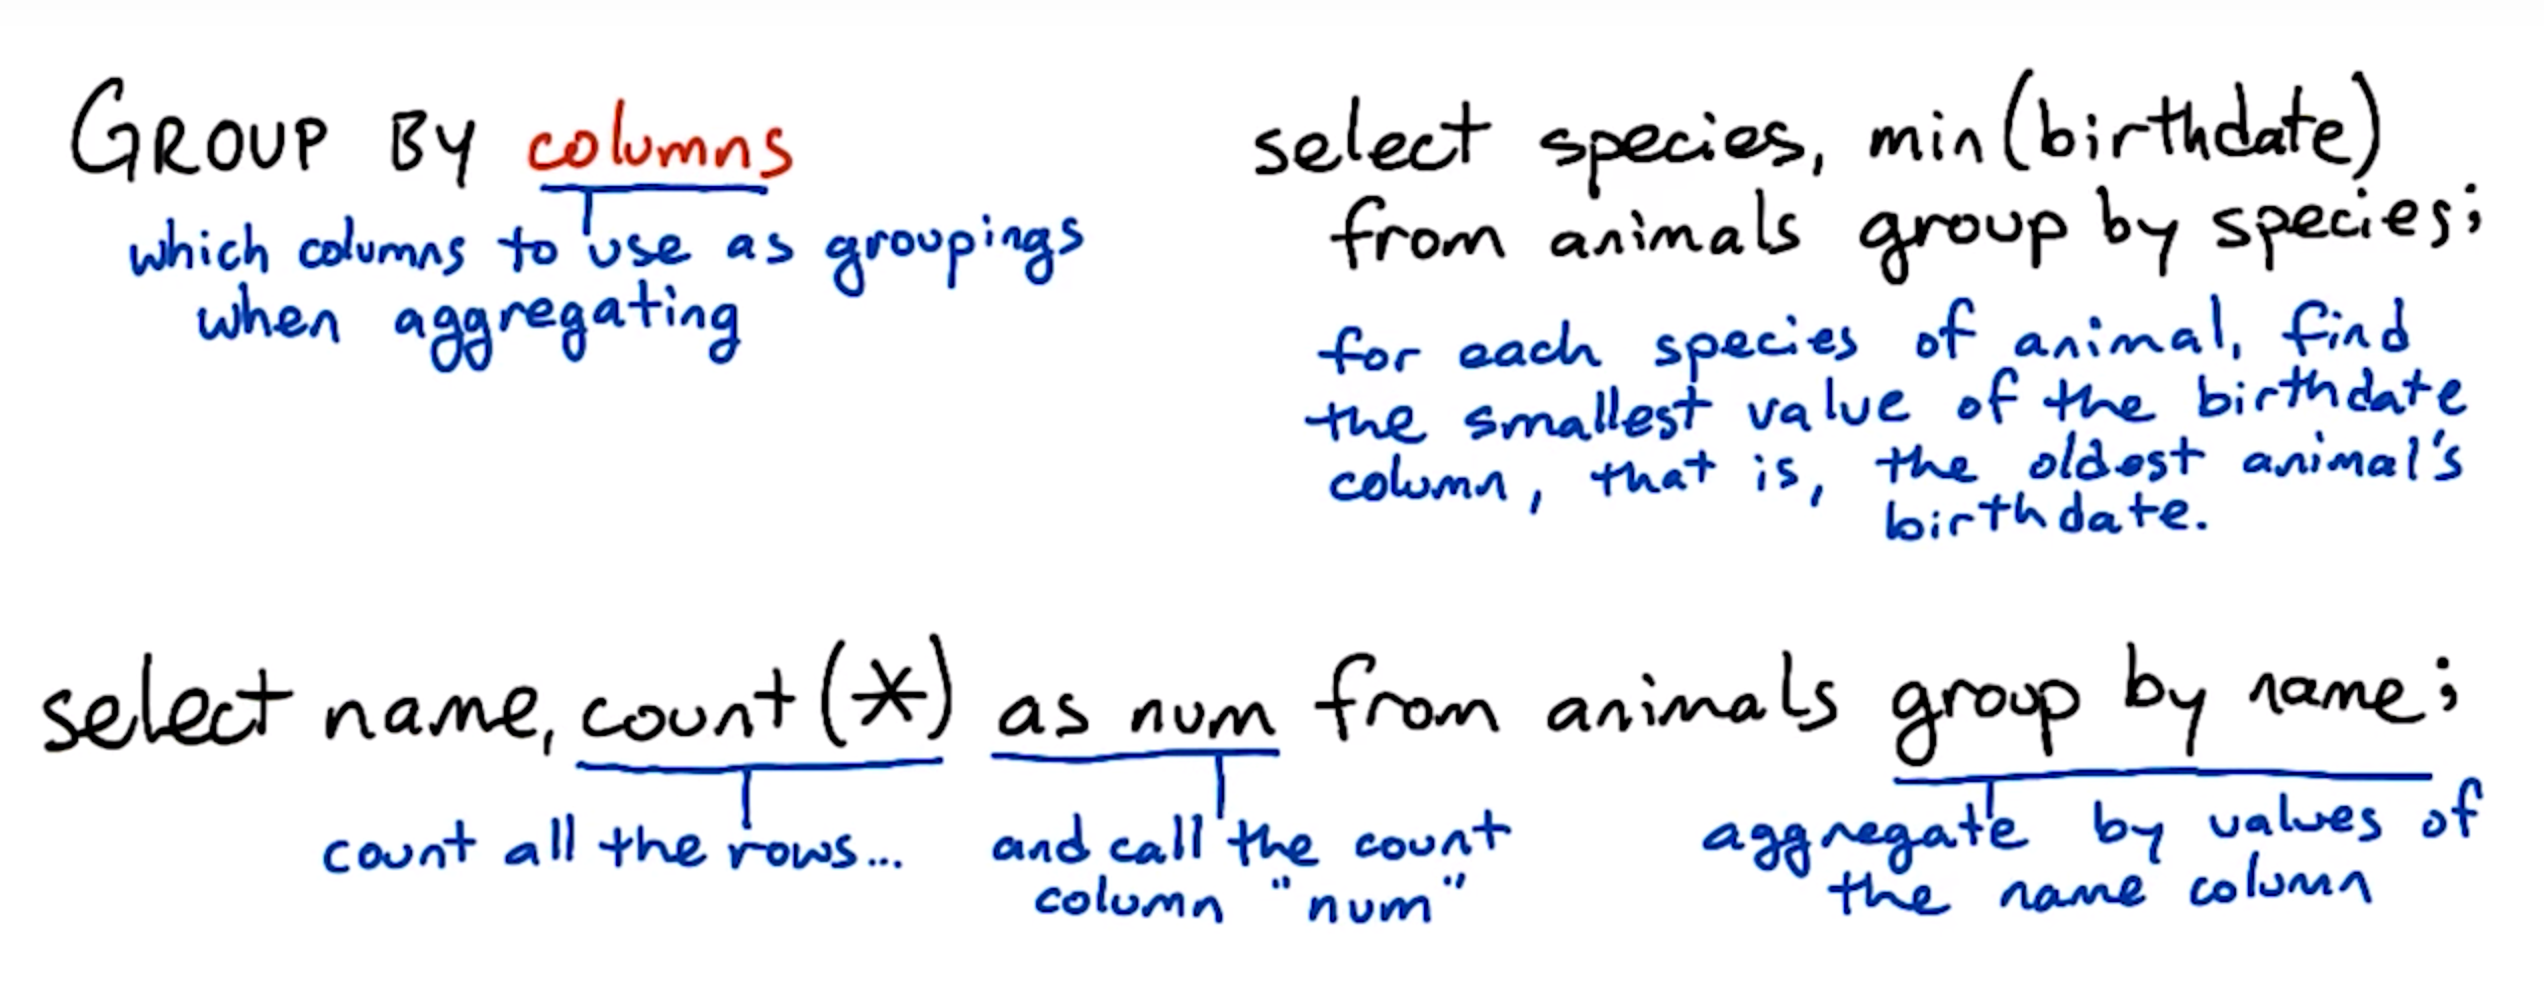 GROUP BY columns
which columns to use as groupings
when aggregating
select species, min(birthdate)
from animals group by species;
for each species of animal, find
the smallest value of the birthdate
column, that is, the oldest animal's
birthdate.
select name, count(*) as num from animals group by name;
count all the rows...
and call the count
column "num"
aggregate by values of
the name column